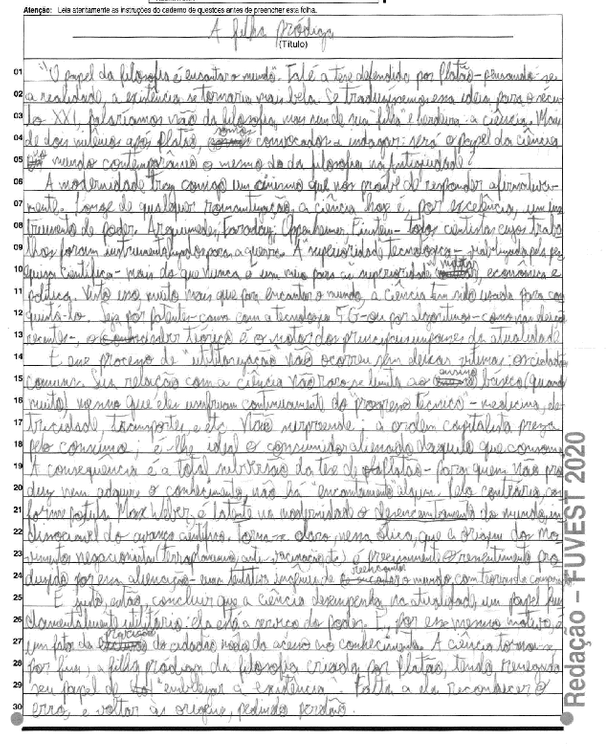 Atenção: Leia atentamente as instruções do caderno de questões antes de preencher esta folha.
A filha pródiga
(Título)
01 "O papel da filosofia é encantar o mundo". Tal é a tese defendida por Platão - pensando-se
02 a realidade, a existência se tornaria mais bela. Se traduzíssemos essa ideia para o sécu-
03 lo XXI, falaríamos não da filosofia, mas sim de sua filha e herdeira: a ciência. Mais
04 de dois milênios após Platão, somos convocados a indagar: será o papel da ciência
05 no mundo contemporâneo o mesmo do da filosofia na Antiguidade?
06 A modernidade traz consigo um cinismo que nos proíbe de responder afirmativa-
07 mente. Longe de qualquer romantização, a ciência hoje é, por excelência, um ins-
08 trumento de poder. Arquimedes, Faraday, Oppenheimer, Einstein - todos cientistas cujos traba-
09 lhos foram instrumentalizados para a guerra. A superioridade tecnológica - viabilizada pela pes-
10 quisa científica - mais do que nunca é um meio para a superioridade militar, econômica e
11 política. Visto isso, muito mais que para encantar o mundo, a ciência tem sido usada para con-
12 quistá-lo. Seja por patentes - como com a tecnologia 5G - ou por algoritmos - como nas eleições
13 recentes -, o teórico é o motor dos principais impérios da atualidade.
14 E esse processo de "utilitarização" não ocorreu sem deixar vítimas: os cidadãos
15 comuns. Sua relação com a ciência não raro se limita ao ensino básico (quando
16 muito), mesmo que eles usufruam continuamente do "progresso técnico" - medicina, ele-
17 tricidade, transporte, etc. Não surpreende: a ordem capitalista preza
18 pelo consumo; é-lhe ideal o consumidor alienado daquilo que consome.
19 A consequência é a total subversão da tese de Platão - para quem não pro-
20 duz nem adquire o conhecimento, não há "encantamento" algum. Pelo contrário, con-
21 forme postula Max Weber, é latente na modernidade o desencantamento do mundo, in-
22 dissociável do avanço científico. Torna-se claro, nessa ótica, que a origem dos mo-
23 vimentos negacionistas (terraplanismo, anti-vacinação etc) é precisamente o ressentimento pro-
24 duzido por essa alienação - uma tentativa inglória de reencantar o mundo, com teorias da conspiração.
25 É justo, então, concluir que a ciência desempenha, na atualidade, um papel fun-
26 damentalmente utilitário: ela está a serviço do poder. E, por esse mesmo motivo, é
27 um fato da privação do cidadão médio do acesso ao conhecimento. A ciência tornou-se,
28 por fim, a filha pródiga da filosofia criada por Platão, tendo renegado
29 seu papel de "embelezar a existência". Falta a ela reconhecer o
30 erro, e voltar às origens, pedindo perdão.
Redação - FUVEST 2020